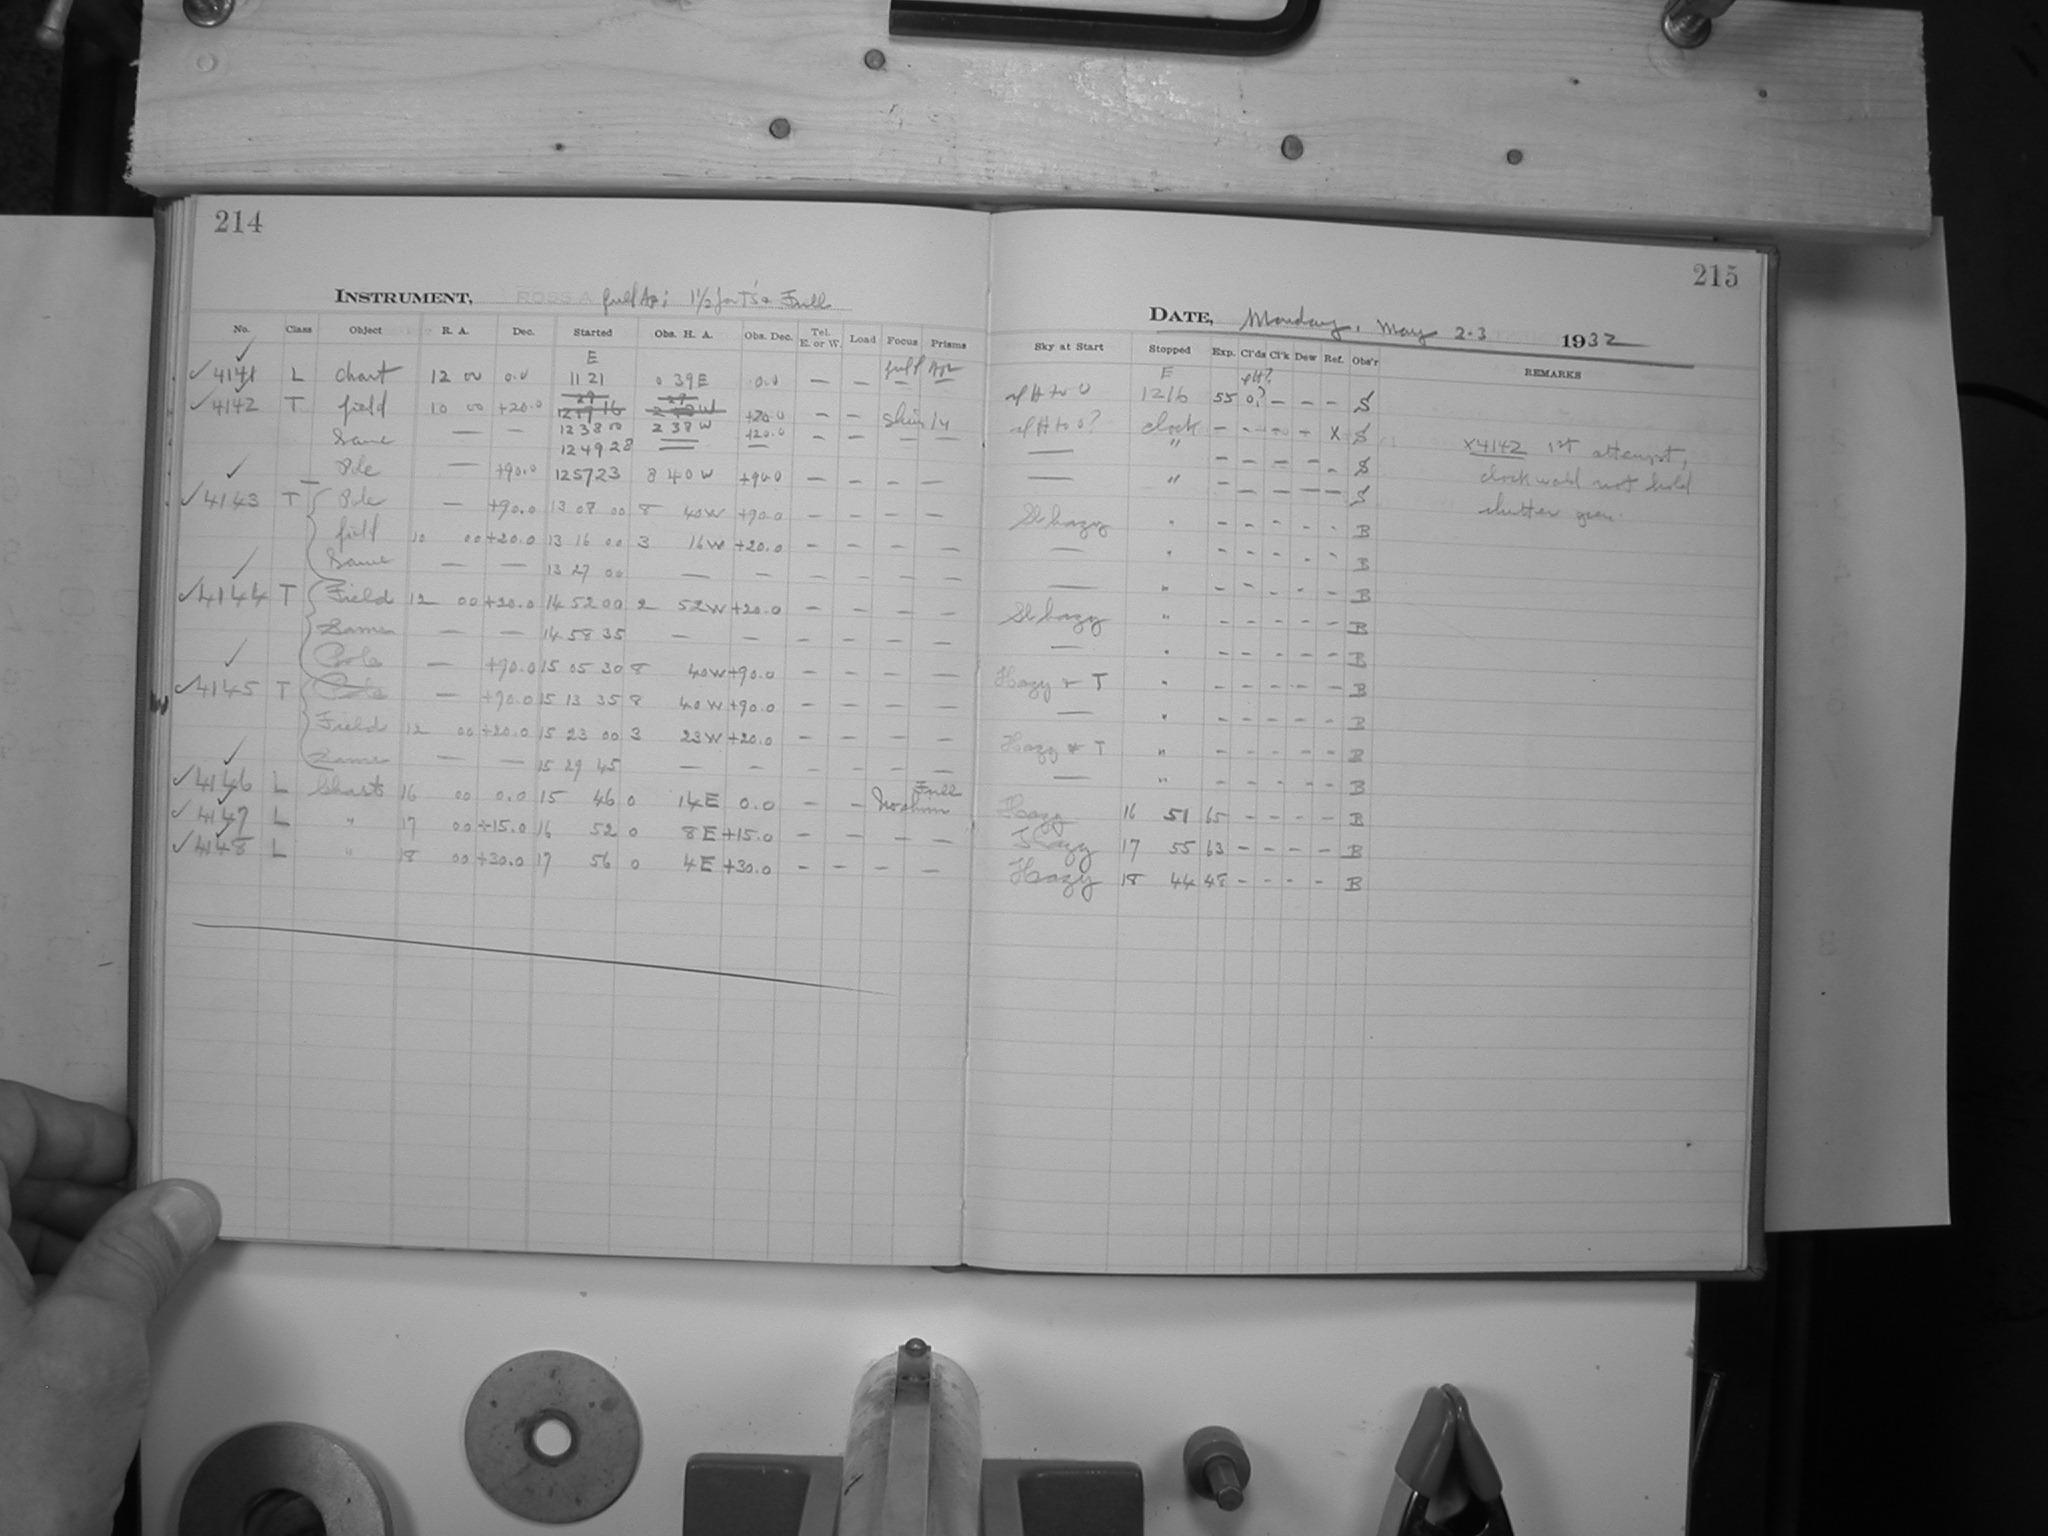 214
215
INSTRUMENT, ROSS A full Ap; 1½ for T's Full
DATE, Monday, May 2-3 1932
No. Class Object R. A. Dec. Started Obs. H. A. Obs. Dec. Tel. E. or W. Load Focus Prisms
Sky at Start Stopped Exp. Cl'ds Cl'k Dew Ref. Obs'r REMARKS
E full Ap
E
4141 L chart 12 00 0.0 11 21 0 39E 0.0 — — — — 12 16 55 0? — — — S
4142 T field 10 00 +20.0 +20.0 — — clock — - — — X S
12 38 00 2 38 W +20.0
Same — — 12 49 28 — — — — — — — " – – – – – S
Pole — +90.0 12 57 23 8 40 W +90.0 — — — — — " – – — – – S
x4142 1st attempt,
clock would not hold
shutter open.
4143 T Pole — +90.0 13 08 00 8 40W +90.0 — — — — Sl hazy " – – – – – B
field 10 00 +20.0 13 16 00 3 16W +20.0 — — — — — " – – – – – B
Same — — 13 27 00 — — — — — — — " – – – – – B
4144 T Field 12 00 +20.0 14 52 00 2 52W +20.0 — — — — Sl hazy " – – – – – B
Same — — 14 58 35 — — — — — — — " – – – – – B
Pole — +90.0 15 05 30 8 40W +90.0 — — — — Hazy + T " – – – – – B
4145 T Pole — +90.0 15 13 35 8 40W +90.0 — — — — — " – – – – – B
Field 12 00 +20.0 15 23 00 3 23W +20.0 — — — — Hazy + T " – – – – – B
Same — — 15 29 45 — — — — — — — " – – – – – B
Full
4146 L Chart 16 00 0.0 15 46 0 14E 0.0 — — No shim Hazy 16 51 65 – – – – B
4147 L " 17 00 +15.0 16 52 0 8E +15.0 — — — — Hazy 17 55 63 – – – – B
4148 L " 18 00 +30.0 17 56 0 4E +30.0 — — — — Hazy 18 44 48 – – – – B